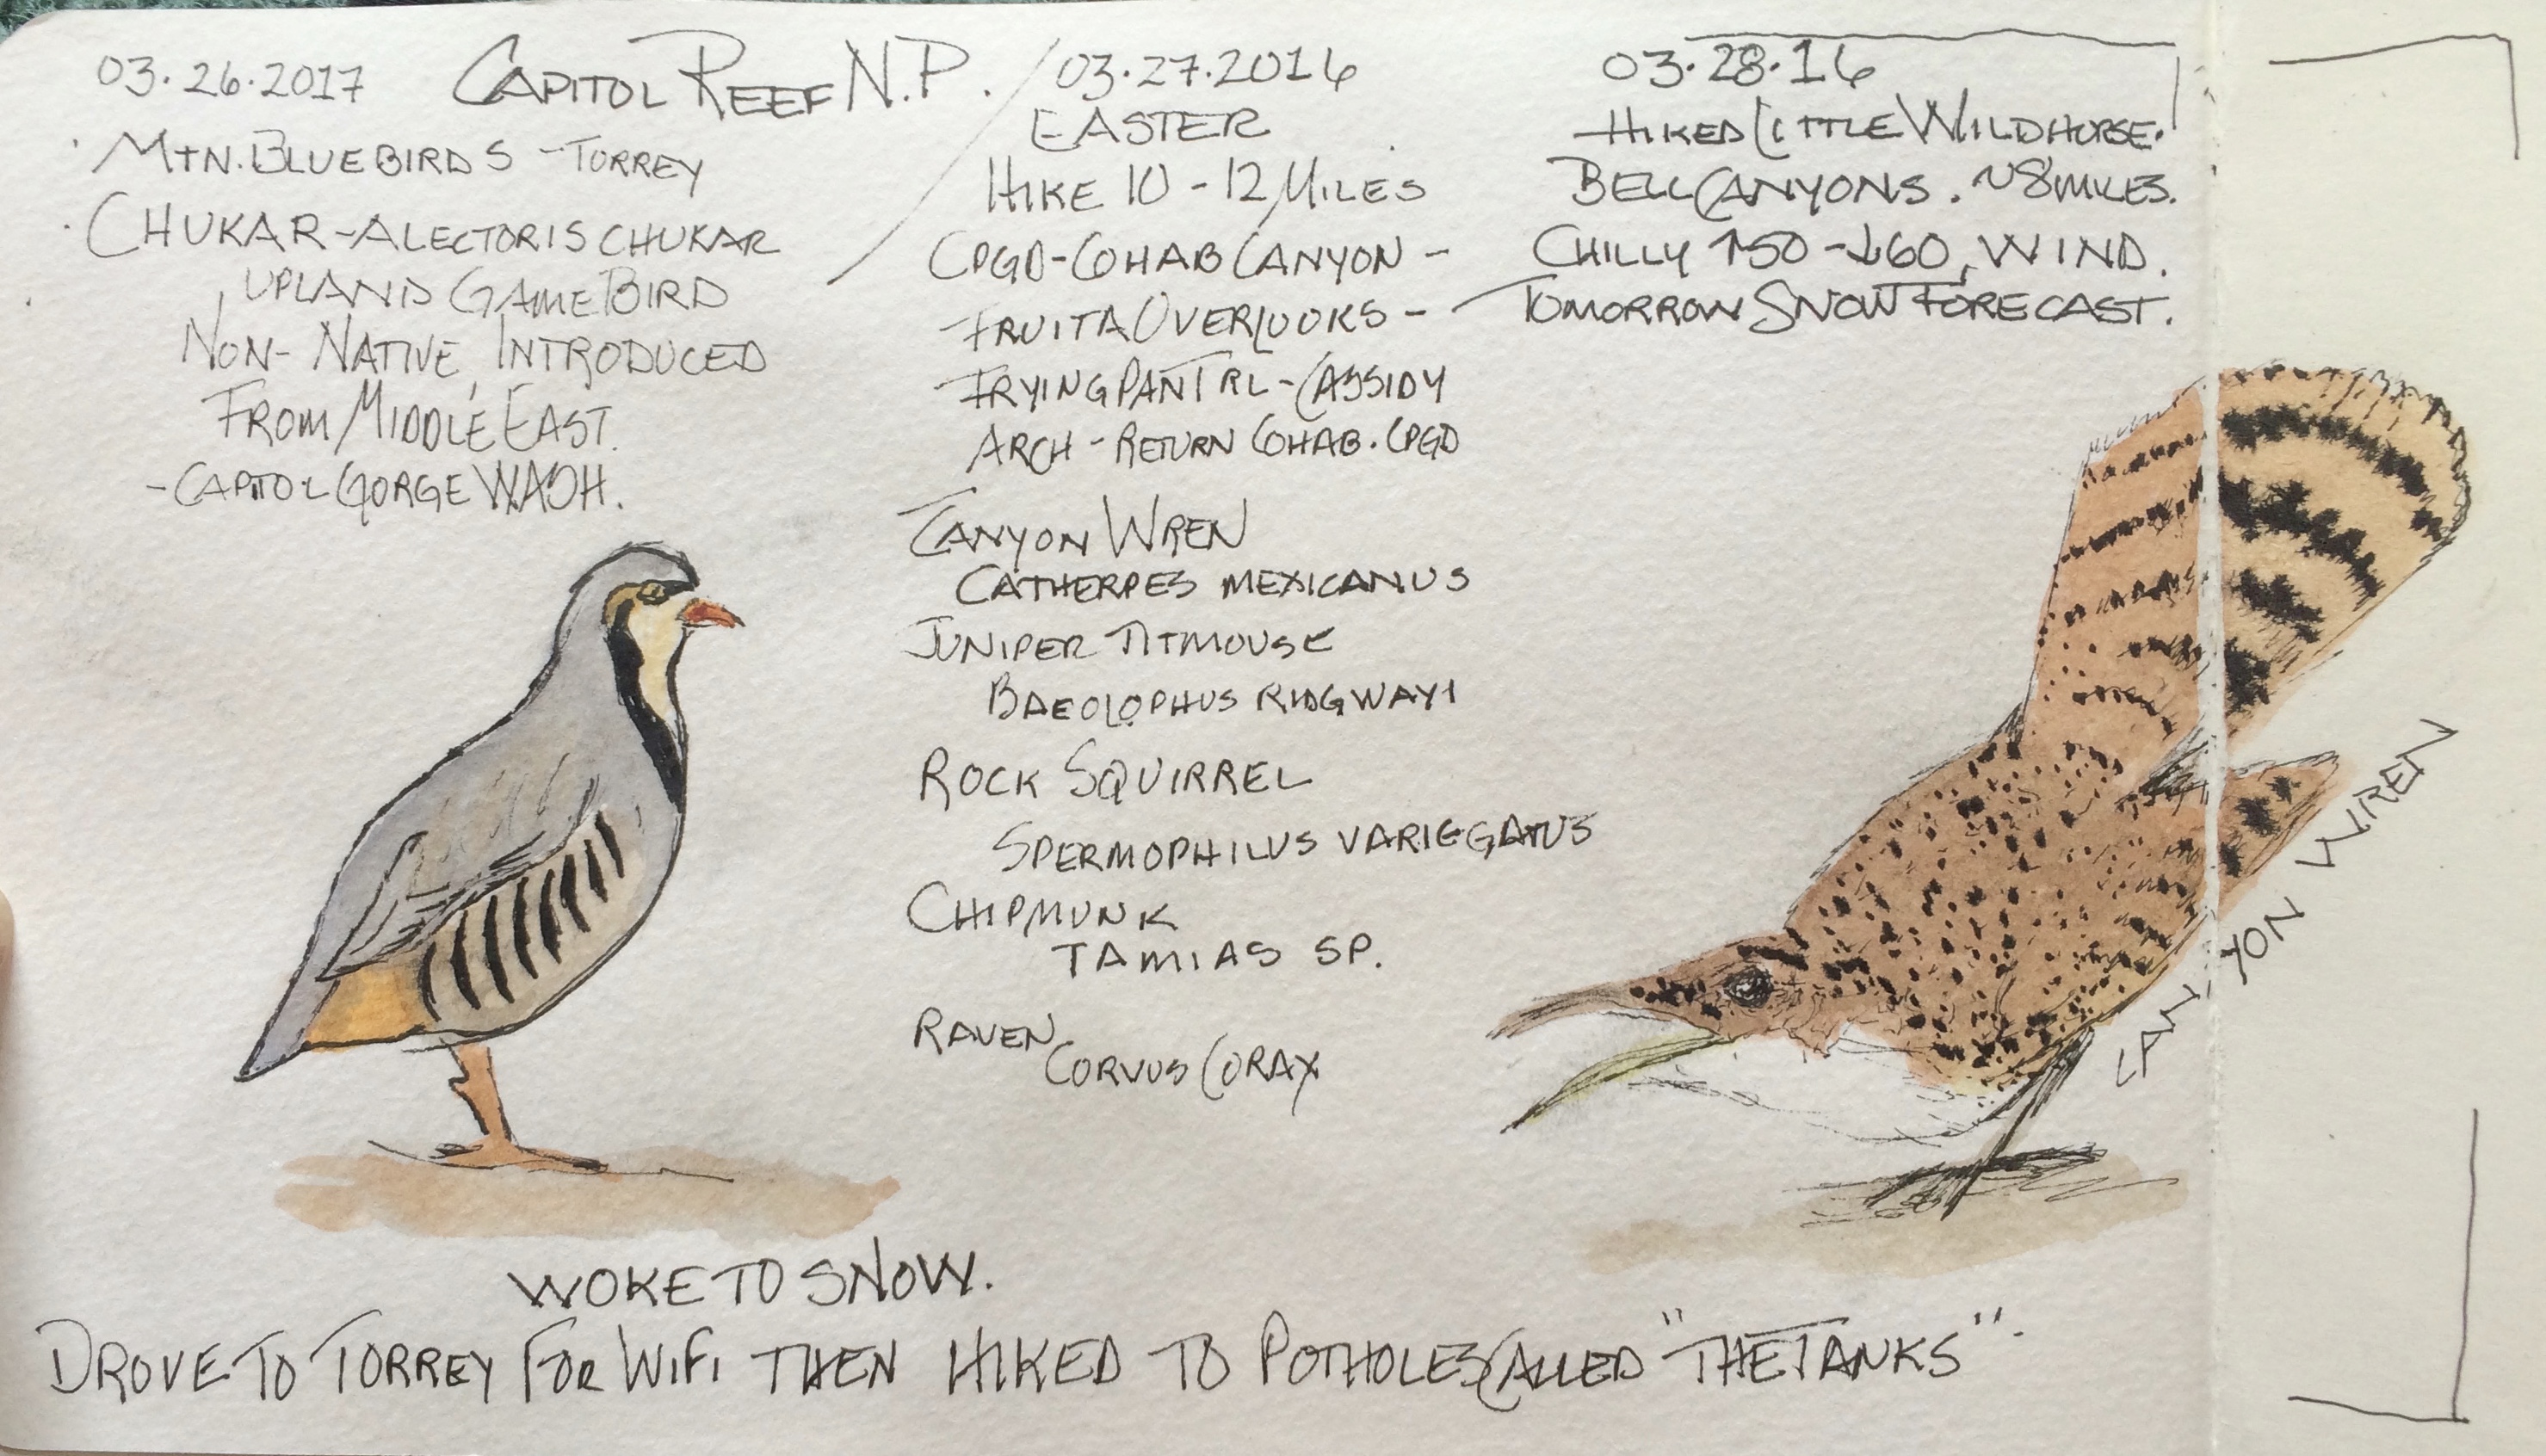 03.26.2017 CAPITOL REEF N.P.
MTN. BLUEBIRDS - TORREY
CHUKAR - ALECTORIS CHUKAR
UPLAND GAME BIRD
NON-NATIVE, INTRODUCED
FROM MIDDLE EAST.
- CAPITOL GORGE WASH.
03.27.2016
EASTER
HIKE 10 - 12 MILES
CPGD - COHAB CANYON -
FRUITA OVERLOOKS -
FRYING PAN TRL - CASSIDY
ARCH - RETURN COHAB. CPGD
CANYON WREN
CATHERPES MEXICANUS
JUNIPER TITMOUSE
BAEOLOPHUS RIDGWAYI
ROCK SQUIRREL
SPERMOPHILUS VARIEGGATUS
CHIPMUNK
TAMIAS SP.
RAVEN
CORVUS CORAX
03.28.16
HIKED LITTLE WILDHORSE.
BELL CANYONS. ~8 MILES.
CHILLY ↑50 - ↓60, WIND.
TOMORROW SNOW FORECAST.
CANYON WREN
WOKE TO SNOW.
DROVE TO TORREY FOR WIFI THEN HIKED TO POTHOLES CALLED "THE TANKS".